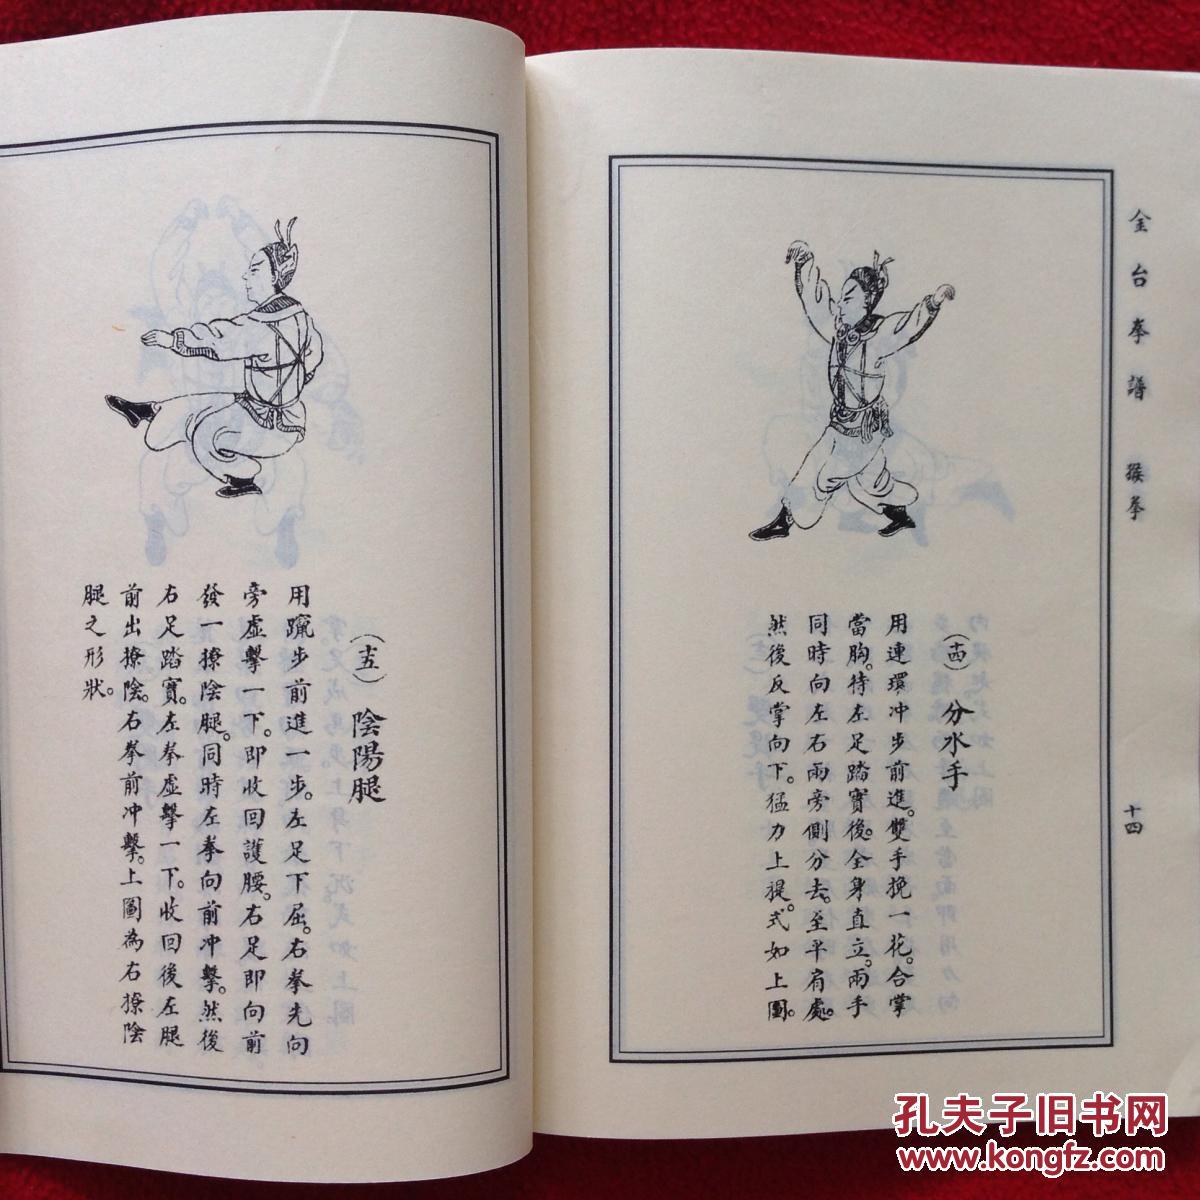 金台拳譜 猴拳
十四
(十四) 分水手
用連環冲步前進。雙手挽一花。合掌
當胸。待左足踏實後。全身直立。兩手
同時向左右兩旁側分去。至半肩處。
然後反掌向下。猛力上提。式如上圖。
(十五) 陰陽腿
用躐步前進一步。左足下屈。右拳先向
旁虛擊一下。即收回護腰。右足即向前
發一撩陰腿。同時左拳向前冲擊。然後
右足踏實。左拳虛擊一下。收回後左腿
前出撩陰。右拳前冲擊。上圖為右撩陰
腿之形狀。
孔夫子旧书网
www.kongfz.com